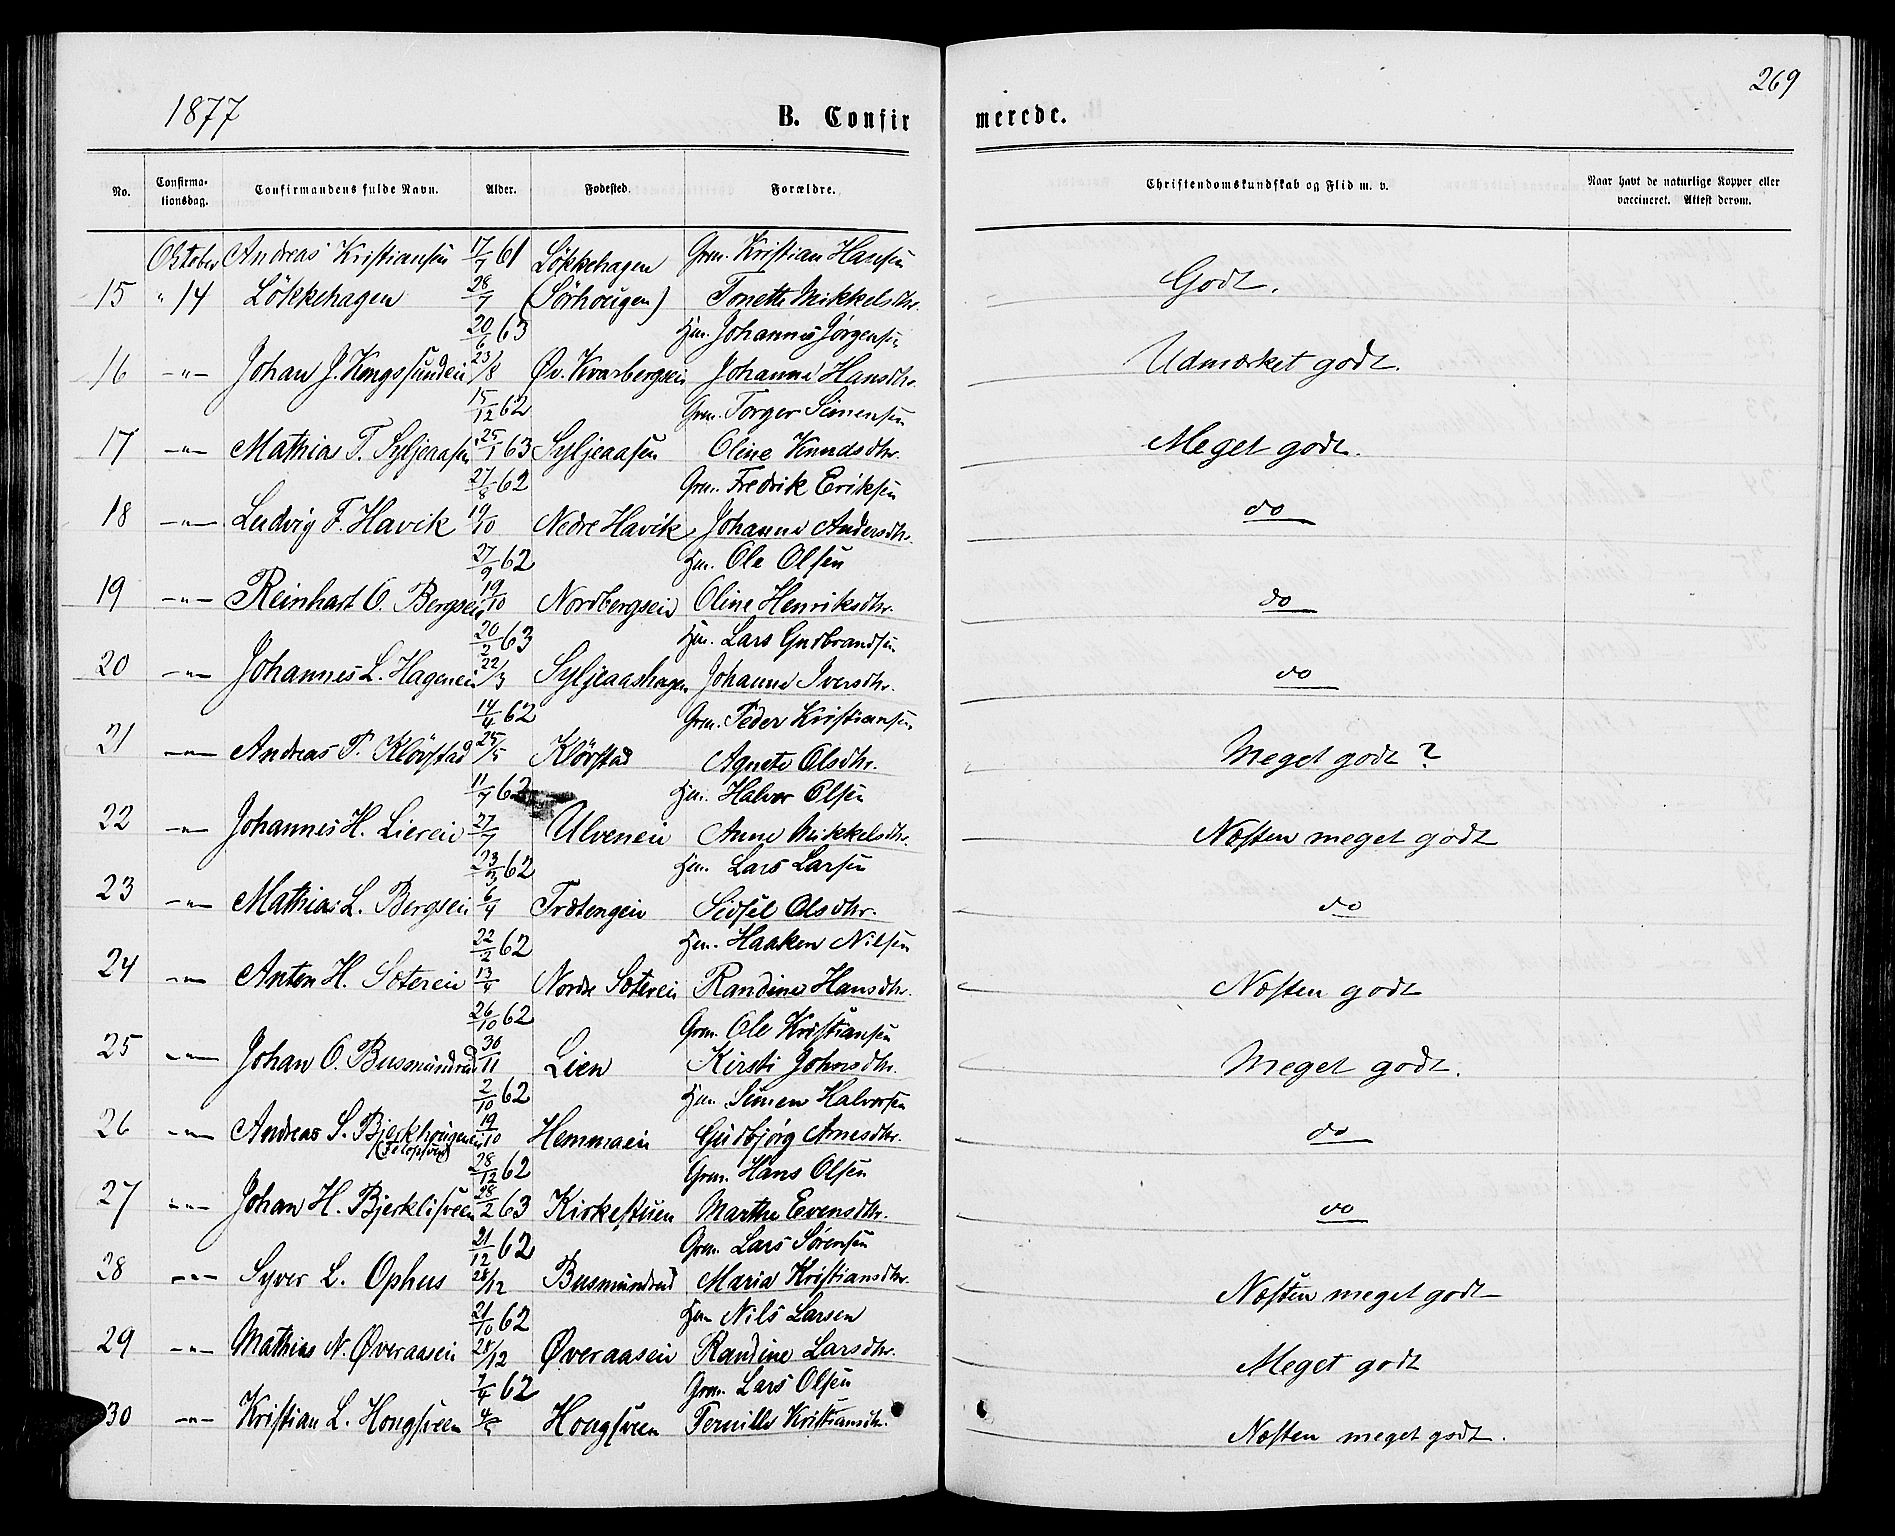 1877
B. Confirmerede.
269
No. Confirmationsdag. Confirmandens fulde Navn. Alder. Fødested. Forældre. Christendomskundskab og Flid m. v. Naar havt de naturlige Kopper eller vaccineret. Attest derom.
Oktober Andreas Kristiansen 17/7 61 Løkkehagen Grm. Kristian Hansen
15 " 14 Løkkehagen 28/7 (Sørhougen) Tonette Mikkelsdtr. Godt.
20/6 63 Hm. Johannes Jørgensen
16 -"- Johan J. Kongssundeie 23/8 Øv. Kvarbergseie Johanne Hansdtr. Udmærket godt.
15/12 62 Grm. Torger Simensen
17 -"- Mathias T. Syljeaasen 25/1 63 Syljeaasen Oline Knudsdtr. Meget godt.
27/8 62 Grm. Fredrik Eriksen
18 -"- Ludvig F. Havik 19/10 Nedre Havik Johanne Andersdtr. do
27/9 62 Hm. Ole Olsen
19 -"- Reinhart O. Bergseie 19/10 Nordbergseie Oline Henriksdtr. do
20/2 63 Hm. Lars Gudbrandsen
20 -"- Johannes L. Hageneie 22/3 Syljeaashagen Johanne Iversdtr. do
14/4 62 Grm. Peder Kristiansen
21 -"- Andreas P. Kløvstad 25/5 Kløvstad Agnete Olsdtr. Meget godt ?
11/7 62 Hm. Halvor Olsen
22 -"- Johannes H. Liereie 27/7 Ulveneie Anne Mikkelsdtr. Næsten meget godt
23/3 62 Hm. Lars Larsen
23 -"- Mathias L. Bergseie 6/4 Trætengeie Sidsel Olsdtr. do
22/2 62 Hm. Haaken Nilsen
24 -"- Anton H. Sætereie 13/4 Nordre Sætereie Randine Hansdtr. Næsten godt
26/10 62 Grm. Ole Kristiansen
25 -"- Johan O. Busmundrud 30/11 Lien Kirsti Johnsdtr. Meget godt.
2/10 62 Hm. Simen Halvorsen
26 -"- Andreas S. Bjerkhougeneie 19/10 Hemmaeie Gudbjørg Arnesdtr. do
28/12 62 Grm. Hans Olsen
27 -"- Johan H. Bjerklisveen 28/2 63 Kirkestuen Marthe Evensdtr. do
21/12 62 Grm. Lars Sørensen
28 -"- Syver L. Ophus 28/12 Busmundrud Maria Kristiansdtr. Næsten meget godt
21/10 62 Hm Nils Larsen
29 -"- Mathias N. Øveraaseie 28/12 Øveraaseie Randine Larsdtr. Meget godt
7/4 62 Grm. Lars Olsen
30 -"- Kristian L. Hongsveen Hongsveen Pernille Kristiansdtr. Næsten meget godt.